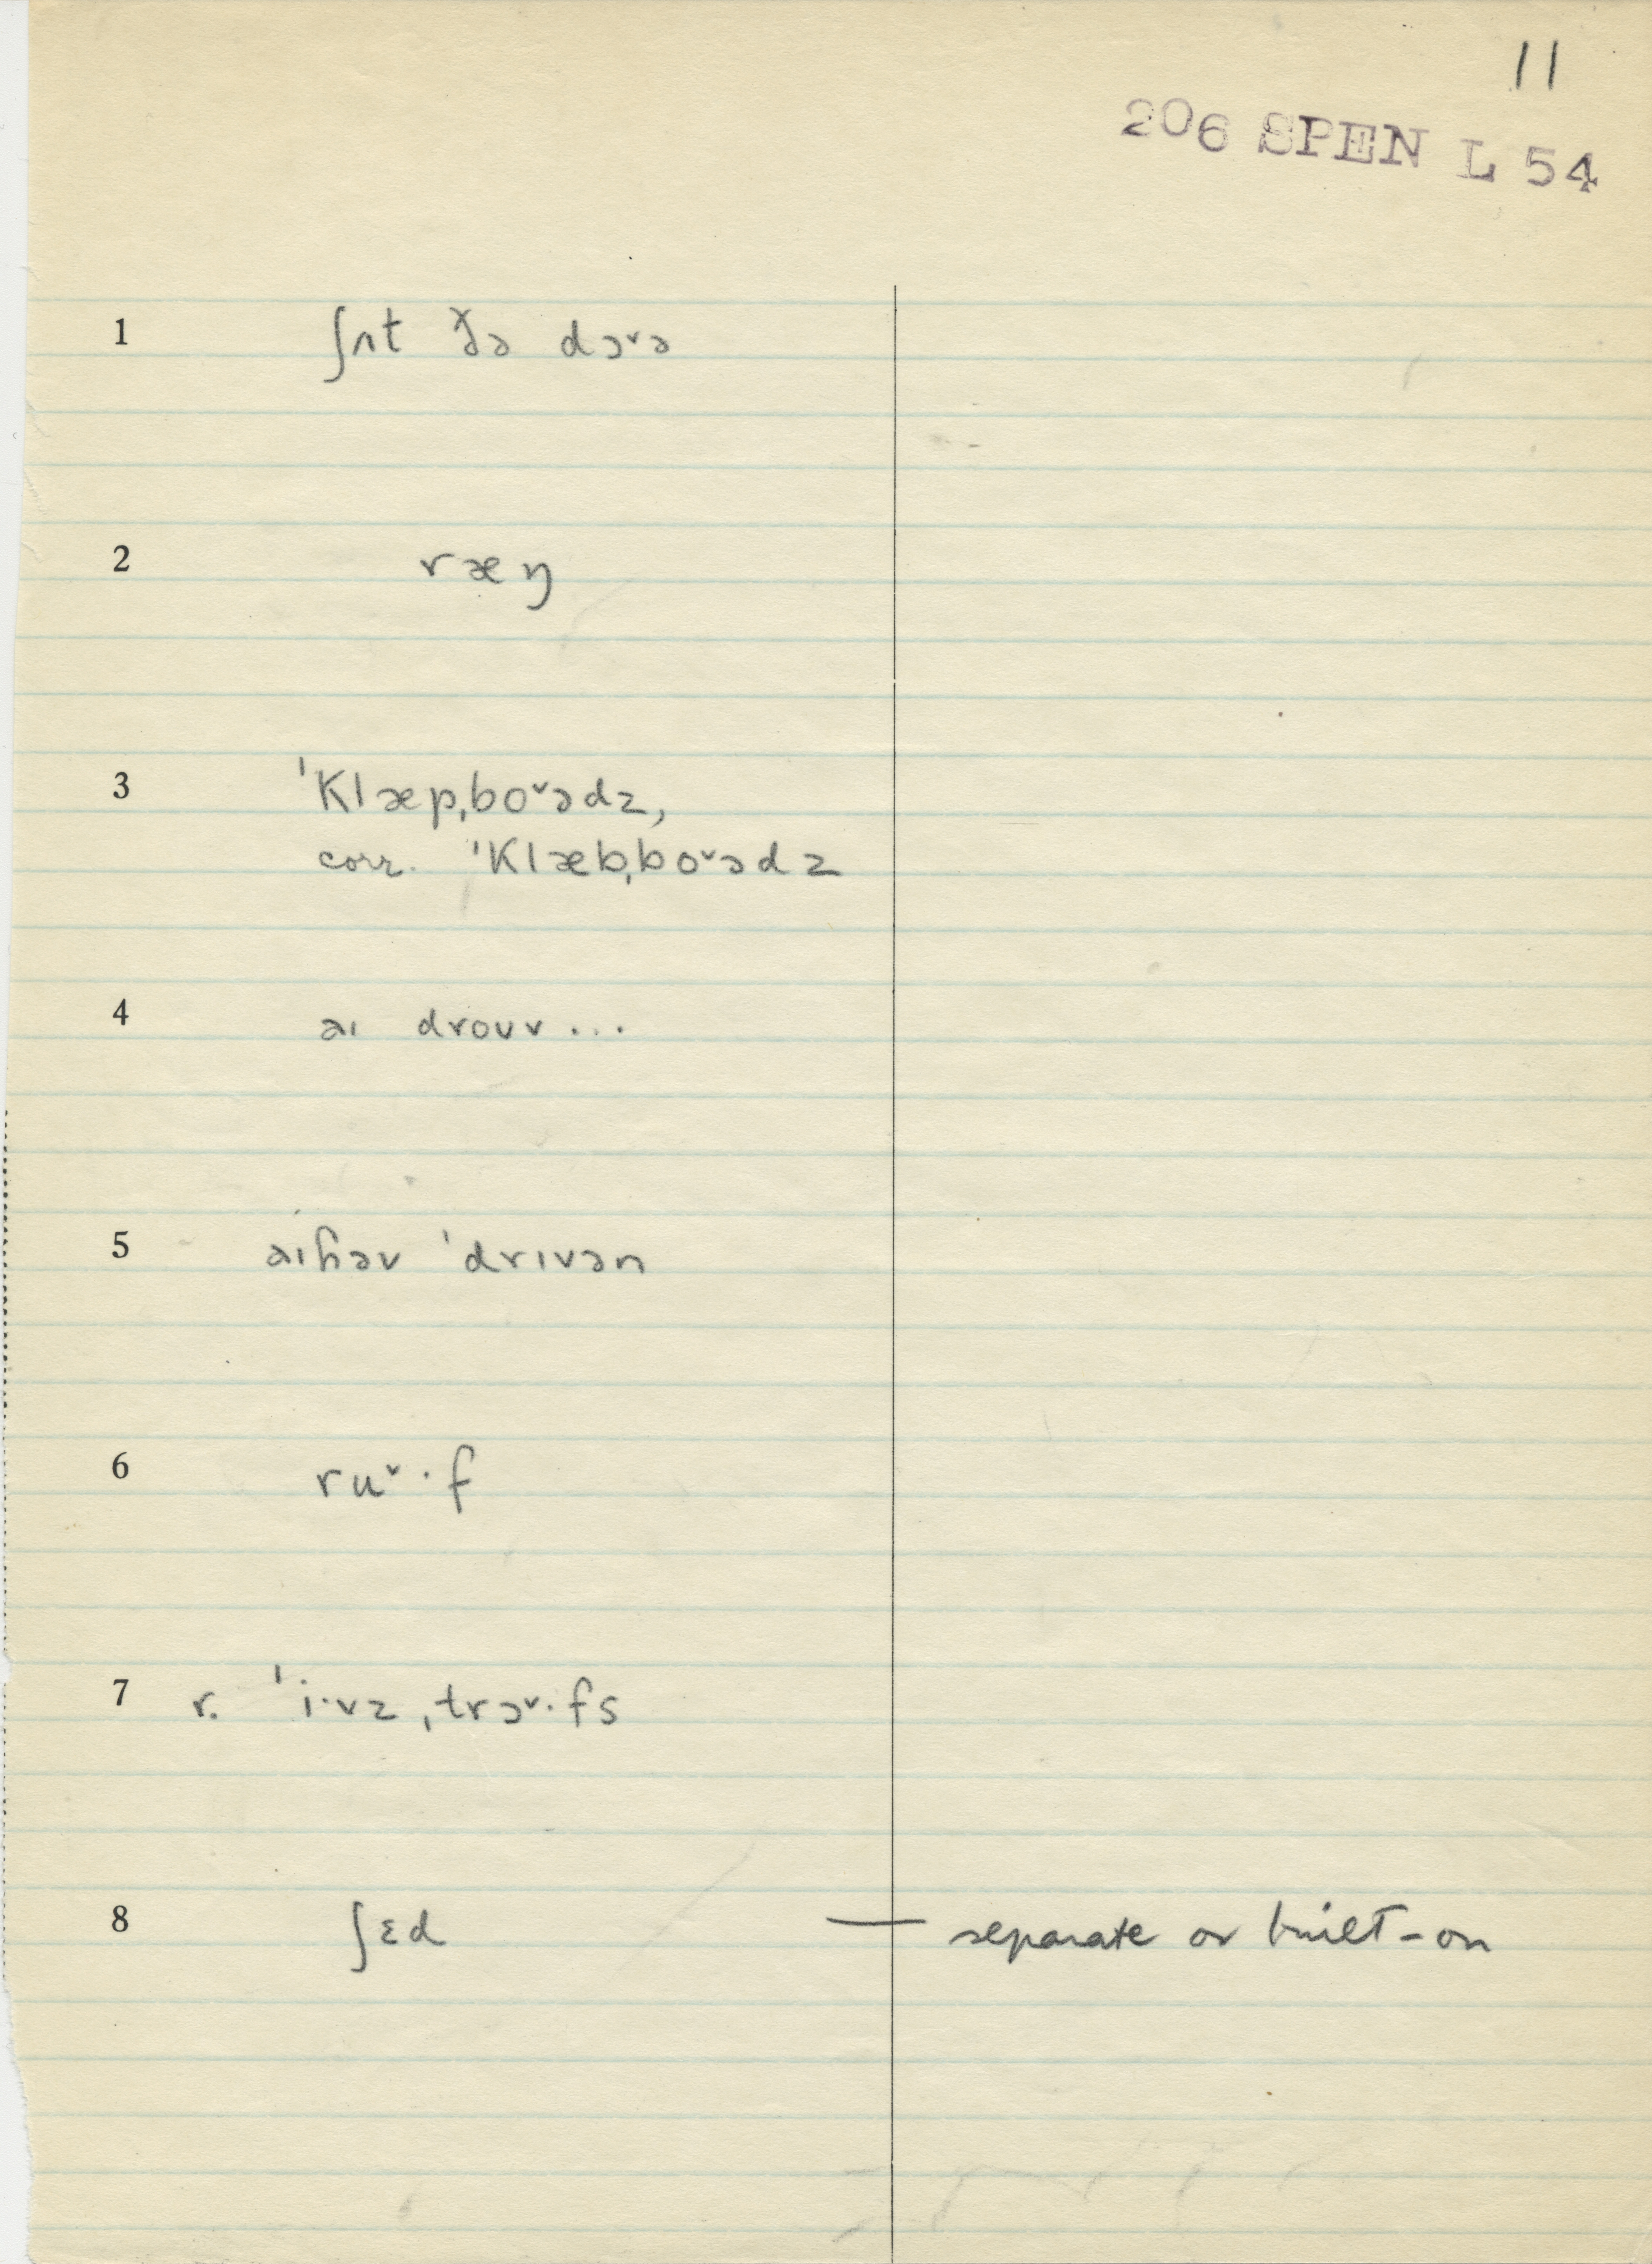 11
206 SPEN L 54
1 ʃʌt ðə dɔ˅ə
2 ræŋ
3 ˈklæpˌbo˅ədz,
corr. ˈklæbˌbo˅ədz
4 aɪ droʊv...
5 aɪhəv ˈdrɪvən
6 ru˅·f
7 r. ˈi·vzˌtrɔ˅·fs
8 ʃɛd — separate or built-on